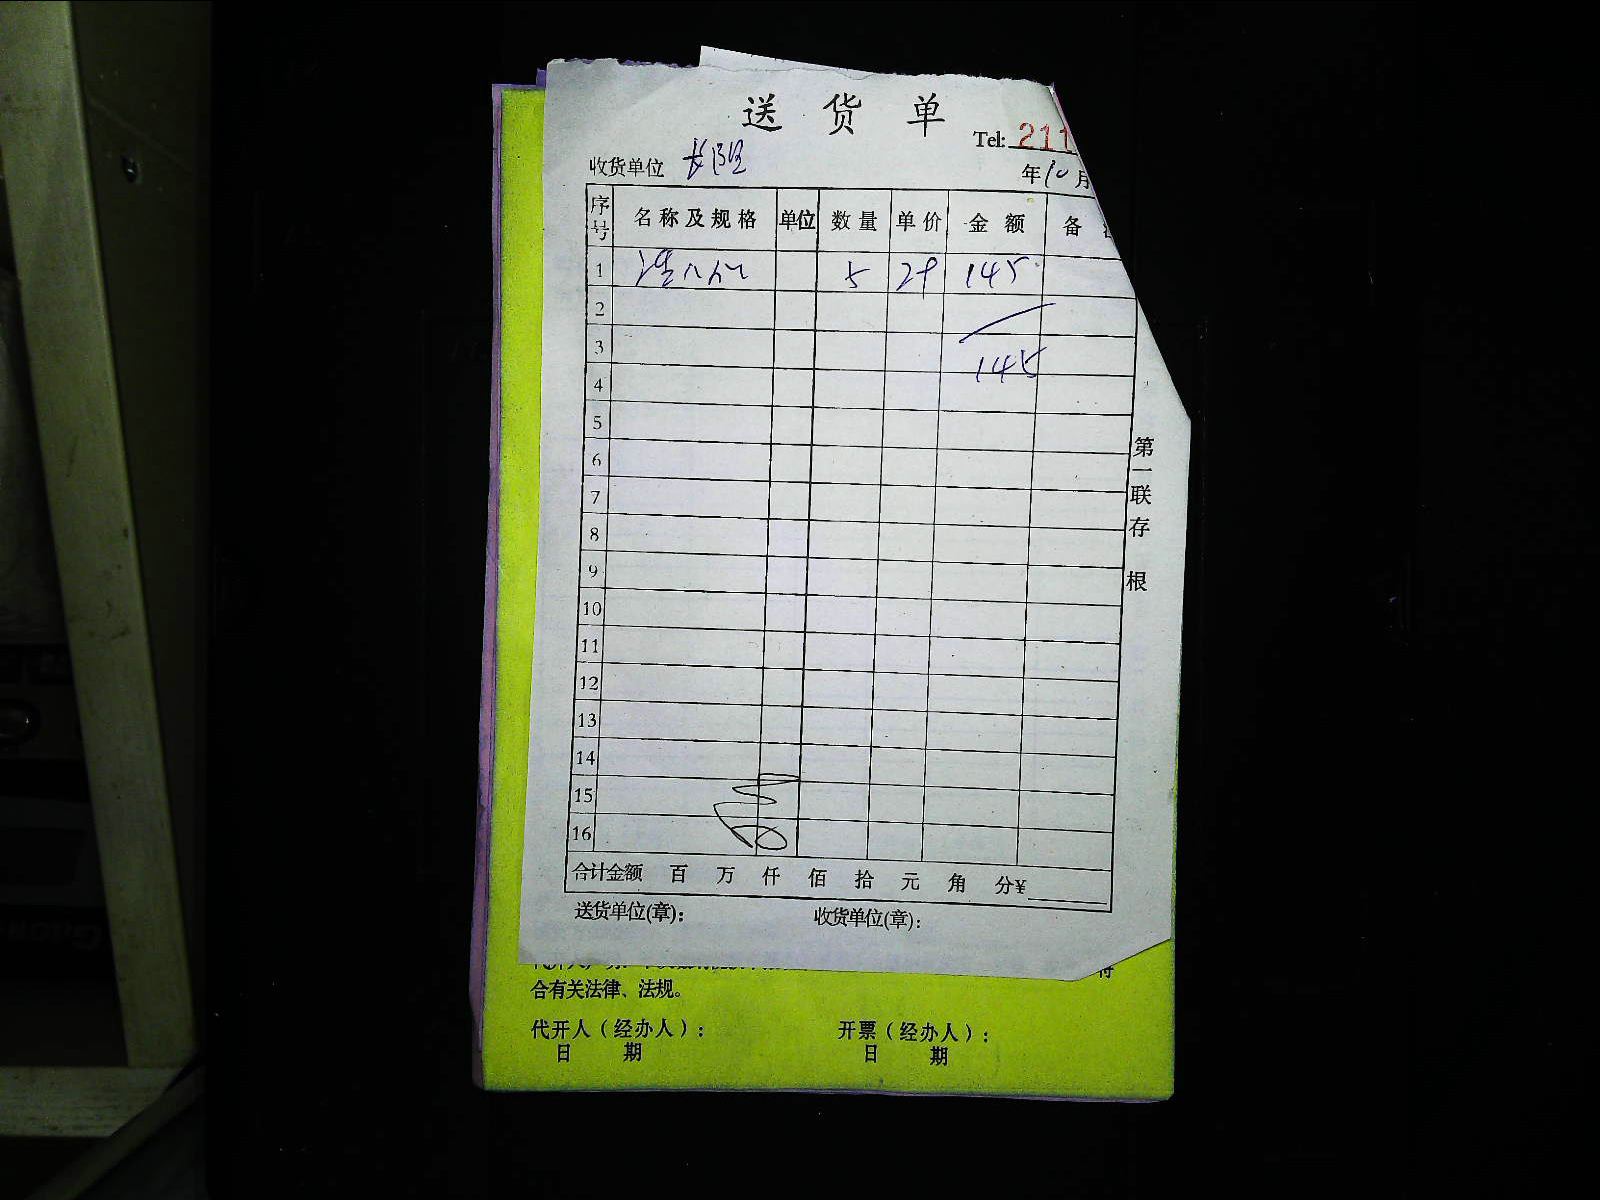 送货单
Tel: 211
收货单位
年10月
序号 名称及规格 单位 数量 单价 金额 备
1 5 29 145
2
3 145
4
5
6
7
8
9
10
11
12
13
14
15
16
合计金额 百 万 仟 佰 拾 元 角 分¥
送货单位(章): 收货单位(章):
第一联存根
合有关法律、法规。
代开人(经办人): 开票(经办人):
日 期 日 期